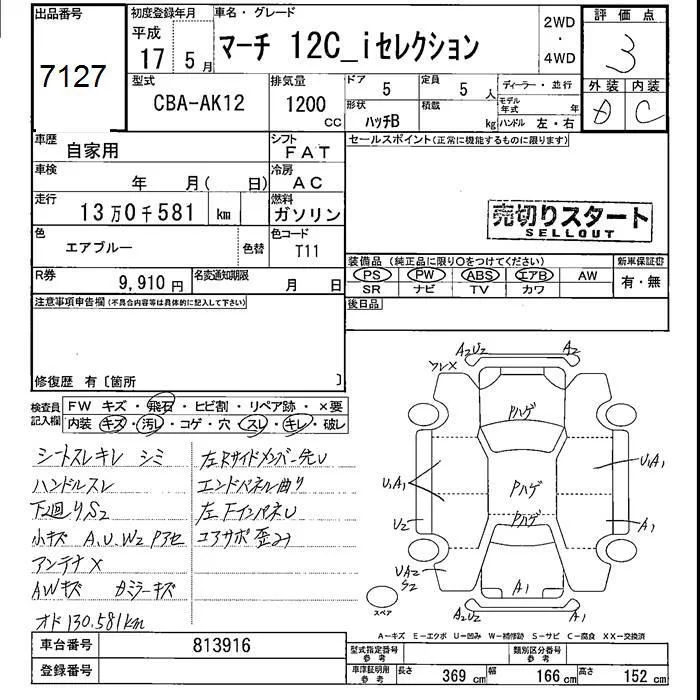 出品番号
7127
初度登録年月
平成
17 5月
車名・グレード
マーチ 12C_iセレクション
2WD
・
4WD
評価点
3
外装 内装
D C
型式
CBA-AK12
排気量
1200
CC
ドア
5
定員
5 人
ディーラー・並行
形状
ハッチB
積載
kg
モデル年式
年
ハンドル 左・右
車歴
自家用
シフト
FAT
セールスポイント(正常に機能するものに限ります)
車検
年 月( 日)
冷房
AC
走行
13万0千581 km
燃料
ガソリン
売切りスタート
SELLOUT
色
エアブルー
色替
色コード
T11
装備品 (純正品に限り○をつけてください)
新車保証書
PS PW ABS エアB AW
SR ナビ TV カワ
有・無
R券
9,910 円
名変通知期限
月 日
後日品
注意事項申告欄(不具合内容等は具体的に記入して下さい)
修復歴 有〔箇所 〕
検査員
記入欄
FW キズ・飛石・ヒビ割・リペア跡・×要
内装 キズ・汚レ・コゲ・穴・スレ・キレ・破レ
シートスレキレ シミ
ハンドルスレ
下廻りS2
小キズ A.U.W2 Pアセ
アンテナX
AWキズ カミラーキズ
オド130.581km
左Rサイドメンバー先U
エンドパネル曲り
左FインパネU
コアサポ歪み
A2U2
A2
フレX
Pハゲ
U1A1
U1A1
Pハゲ
Pハゲ
U2
A1
UA2
S2
A1
A2U2
A2
スペア
A―キズ E―エクボ U―凹み W―補修跡 S―サビ C―腐食 XX―交換済
車台番号
813916
登録番号
型式指定番号
参考
類別区分番号
参考
車庫証明用
参考
長さ
369 cm
幅
166 cm
高さ
152 cm